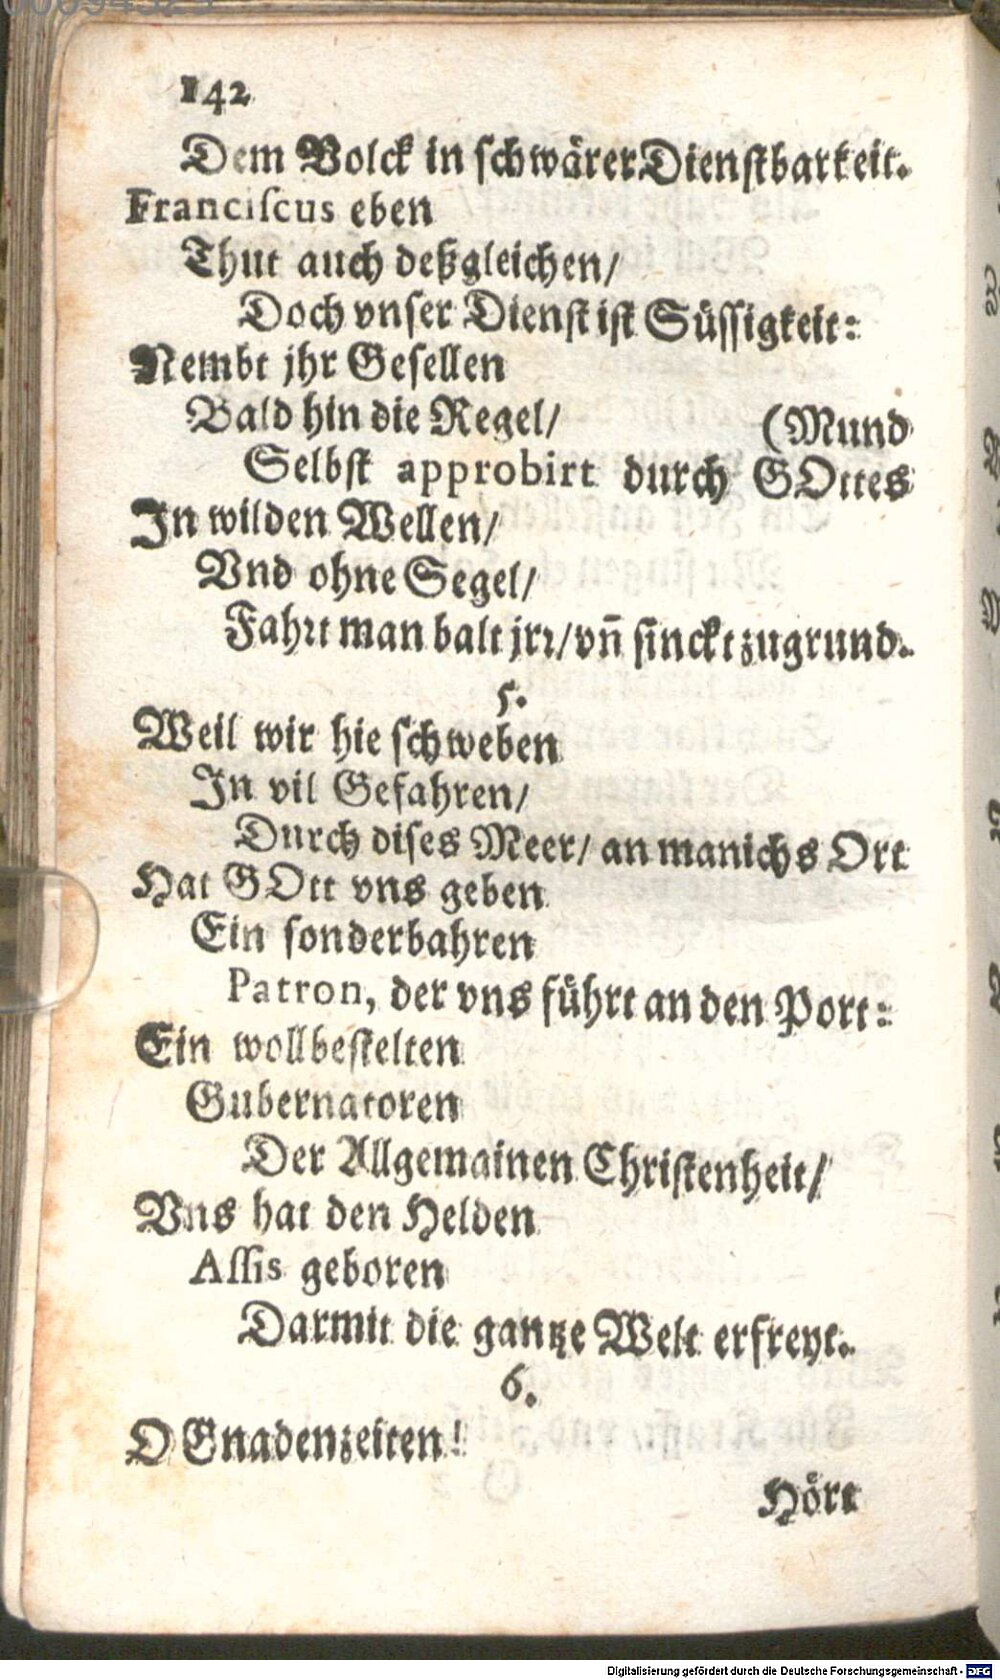 142
Dem Volck in schwärer Dienstbarkeit.
Franciscus eben
Thut auch deßgleichen/
Doch vnser Dienst ist Süssigkeit:
Nembt jhr Gesellen
Bald hin die Regel/ (Mund
Selbst approbirt durch GOttes
In wilden Wellen/
Vnd ohne Segel/
Fahrt man balt jrr/ vñ sinckt zugrund.
5.
Weil wir hie schweben
In vil Gefahren/
Durch dises Meer/ an manichs Ort
Hat GOtt vns geben
Ein sonderbahren
Patron, der vns führt an den Port:
Ein wollbestelten
Gubernatoren
Der Allgemainen Christenheit/
Vns hat den Helden
Assis geboren
Darmit die gantze Welt erfreyt.
6.
O Gnadenzeiten!
Hört
Digitalisierung gefördert durch die Deutsche Forschungsgemeinschaft - DFG